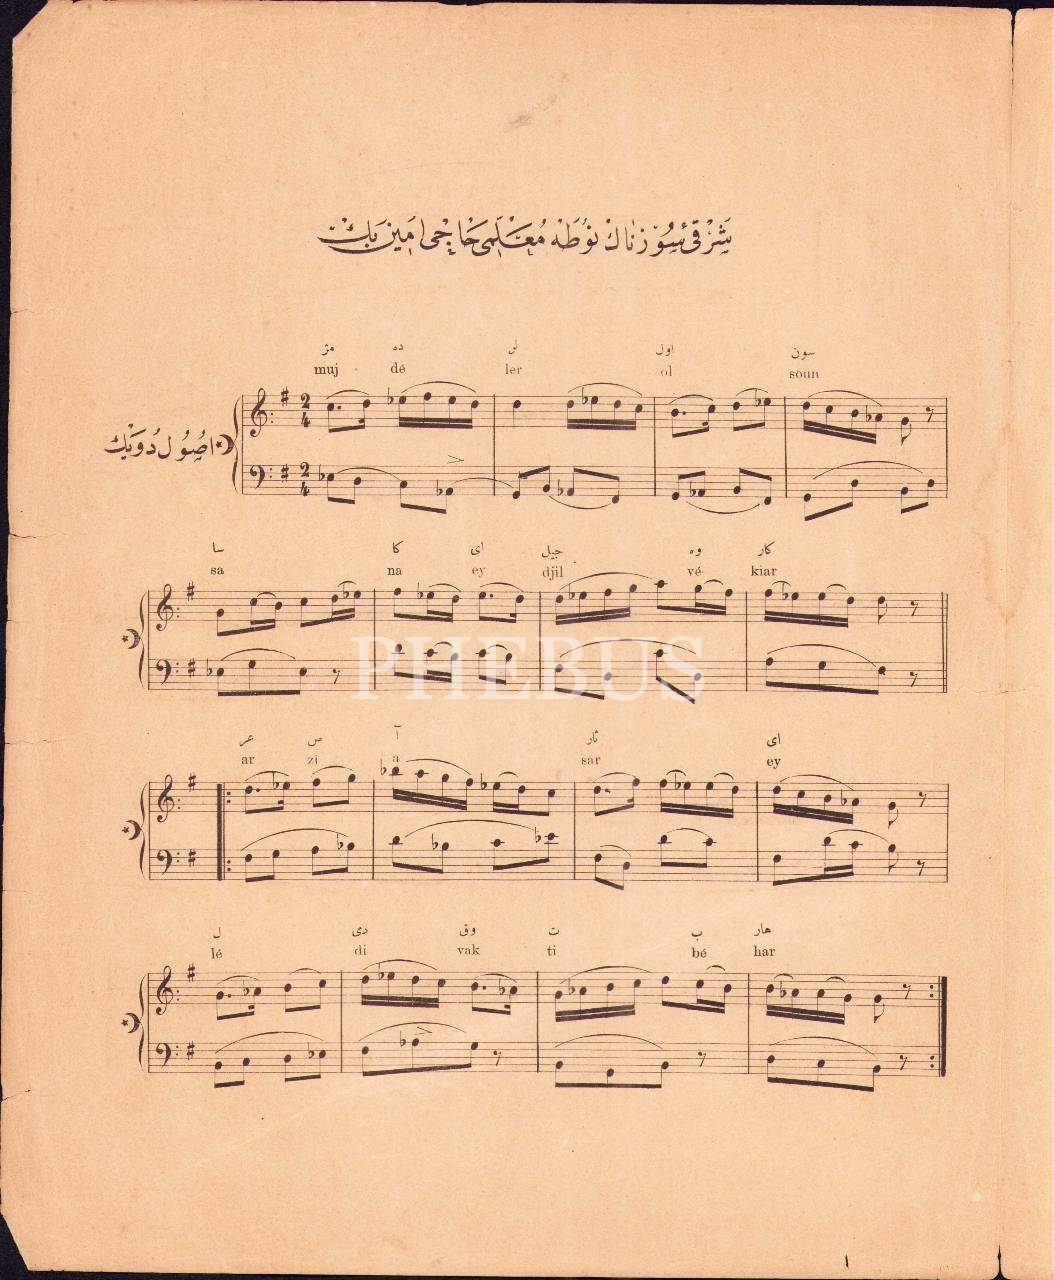 شرقئ سوزناك نوطه معلمی حاجی امین بك
مژ ده لر اول سون
muj - dé ler ol soun
2 4
اصول دویك
2 4
سا كا ای جیل وه كار
sa na ey djil vé- kiar
PHEBUS
عر ض آ ثار ای
ar zi a sar ey
ل دی وق ت ب هار
lé di vak ti bé har